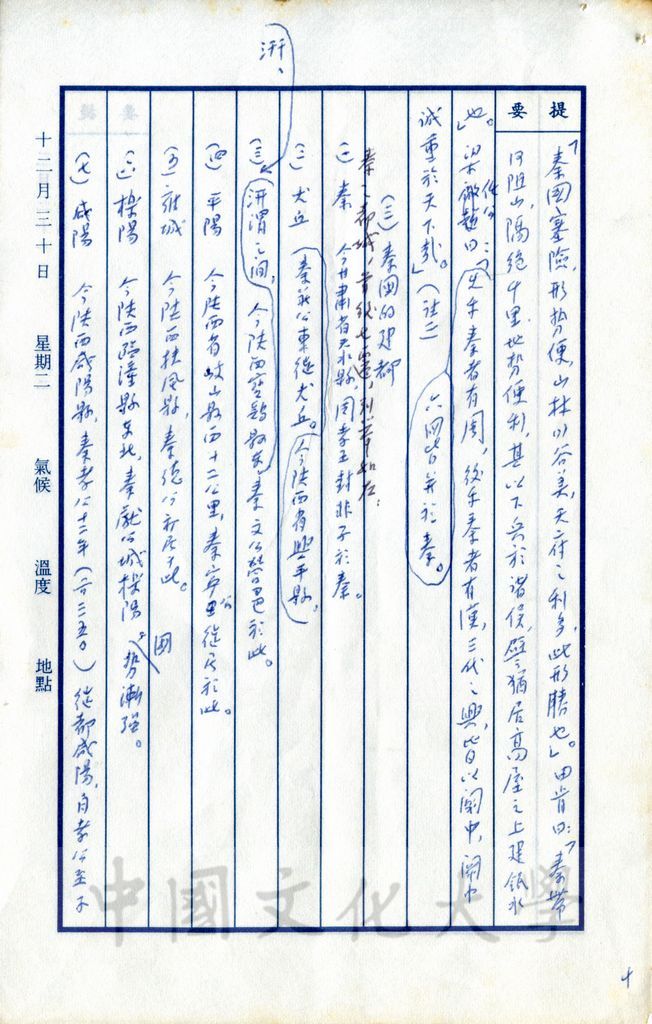 提要
「秦國塞險，形勢便，山林川谷美，天府之利多，此形勝也」。田肯曰：「秦帶
河阻山，隔絕千里，地勢便利，其以下兵於諸侯，譬猶居高屋之上建瓴水
也。」曰：「先乎秦者有周，後乎秦者有漢，三代之興，皆以關中，關中
誠重於天下哉。」（註二）六國皆并於秦。
（三）秦國的建都
秦之都城，
（一）秦　今甘肅省天水縣，周孝王封非子於秦。
（二）犬丘（秦莊公東徙犬丘。今陝西省興平縣。
（三）汧渭之間，今陝西寶雞縣東，秦文公營邑於此。
汧、
（四）平陽　今陝西省岐山縣西十二公里，秦寧公徙居於此。
（五）雍城　今陝西扶風縣，秦德公初居於此。
（六）櫟陽　今陝西臨潼縣東北，秦獻公城櫟陽。國勢漸強。
（七）咸陽　今陝西咸陽縣，秦孝公十二年（西元前三五〇）徙都咸陽，自孝公至子
十二月三十日　星期二　氣候　溫度　地點
中國文化大學